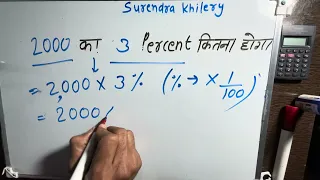 Surendra Khilery
2000 का 3 Percent कितना होगा
= 2,000 × 3 % (% → × 1/100)
= 2000